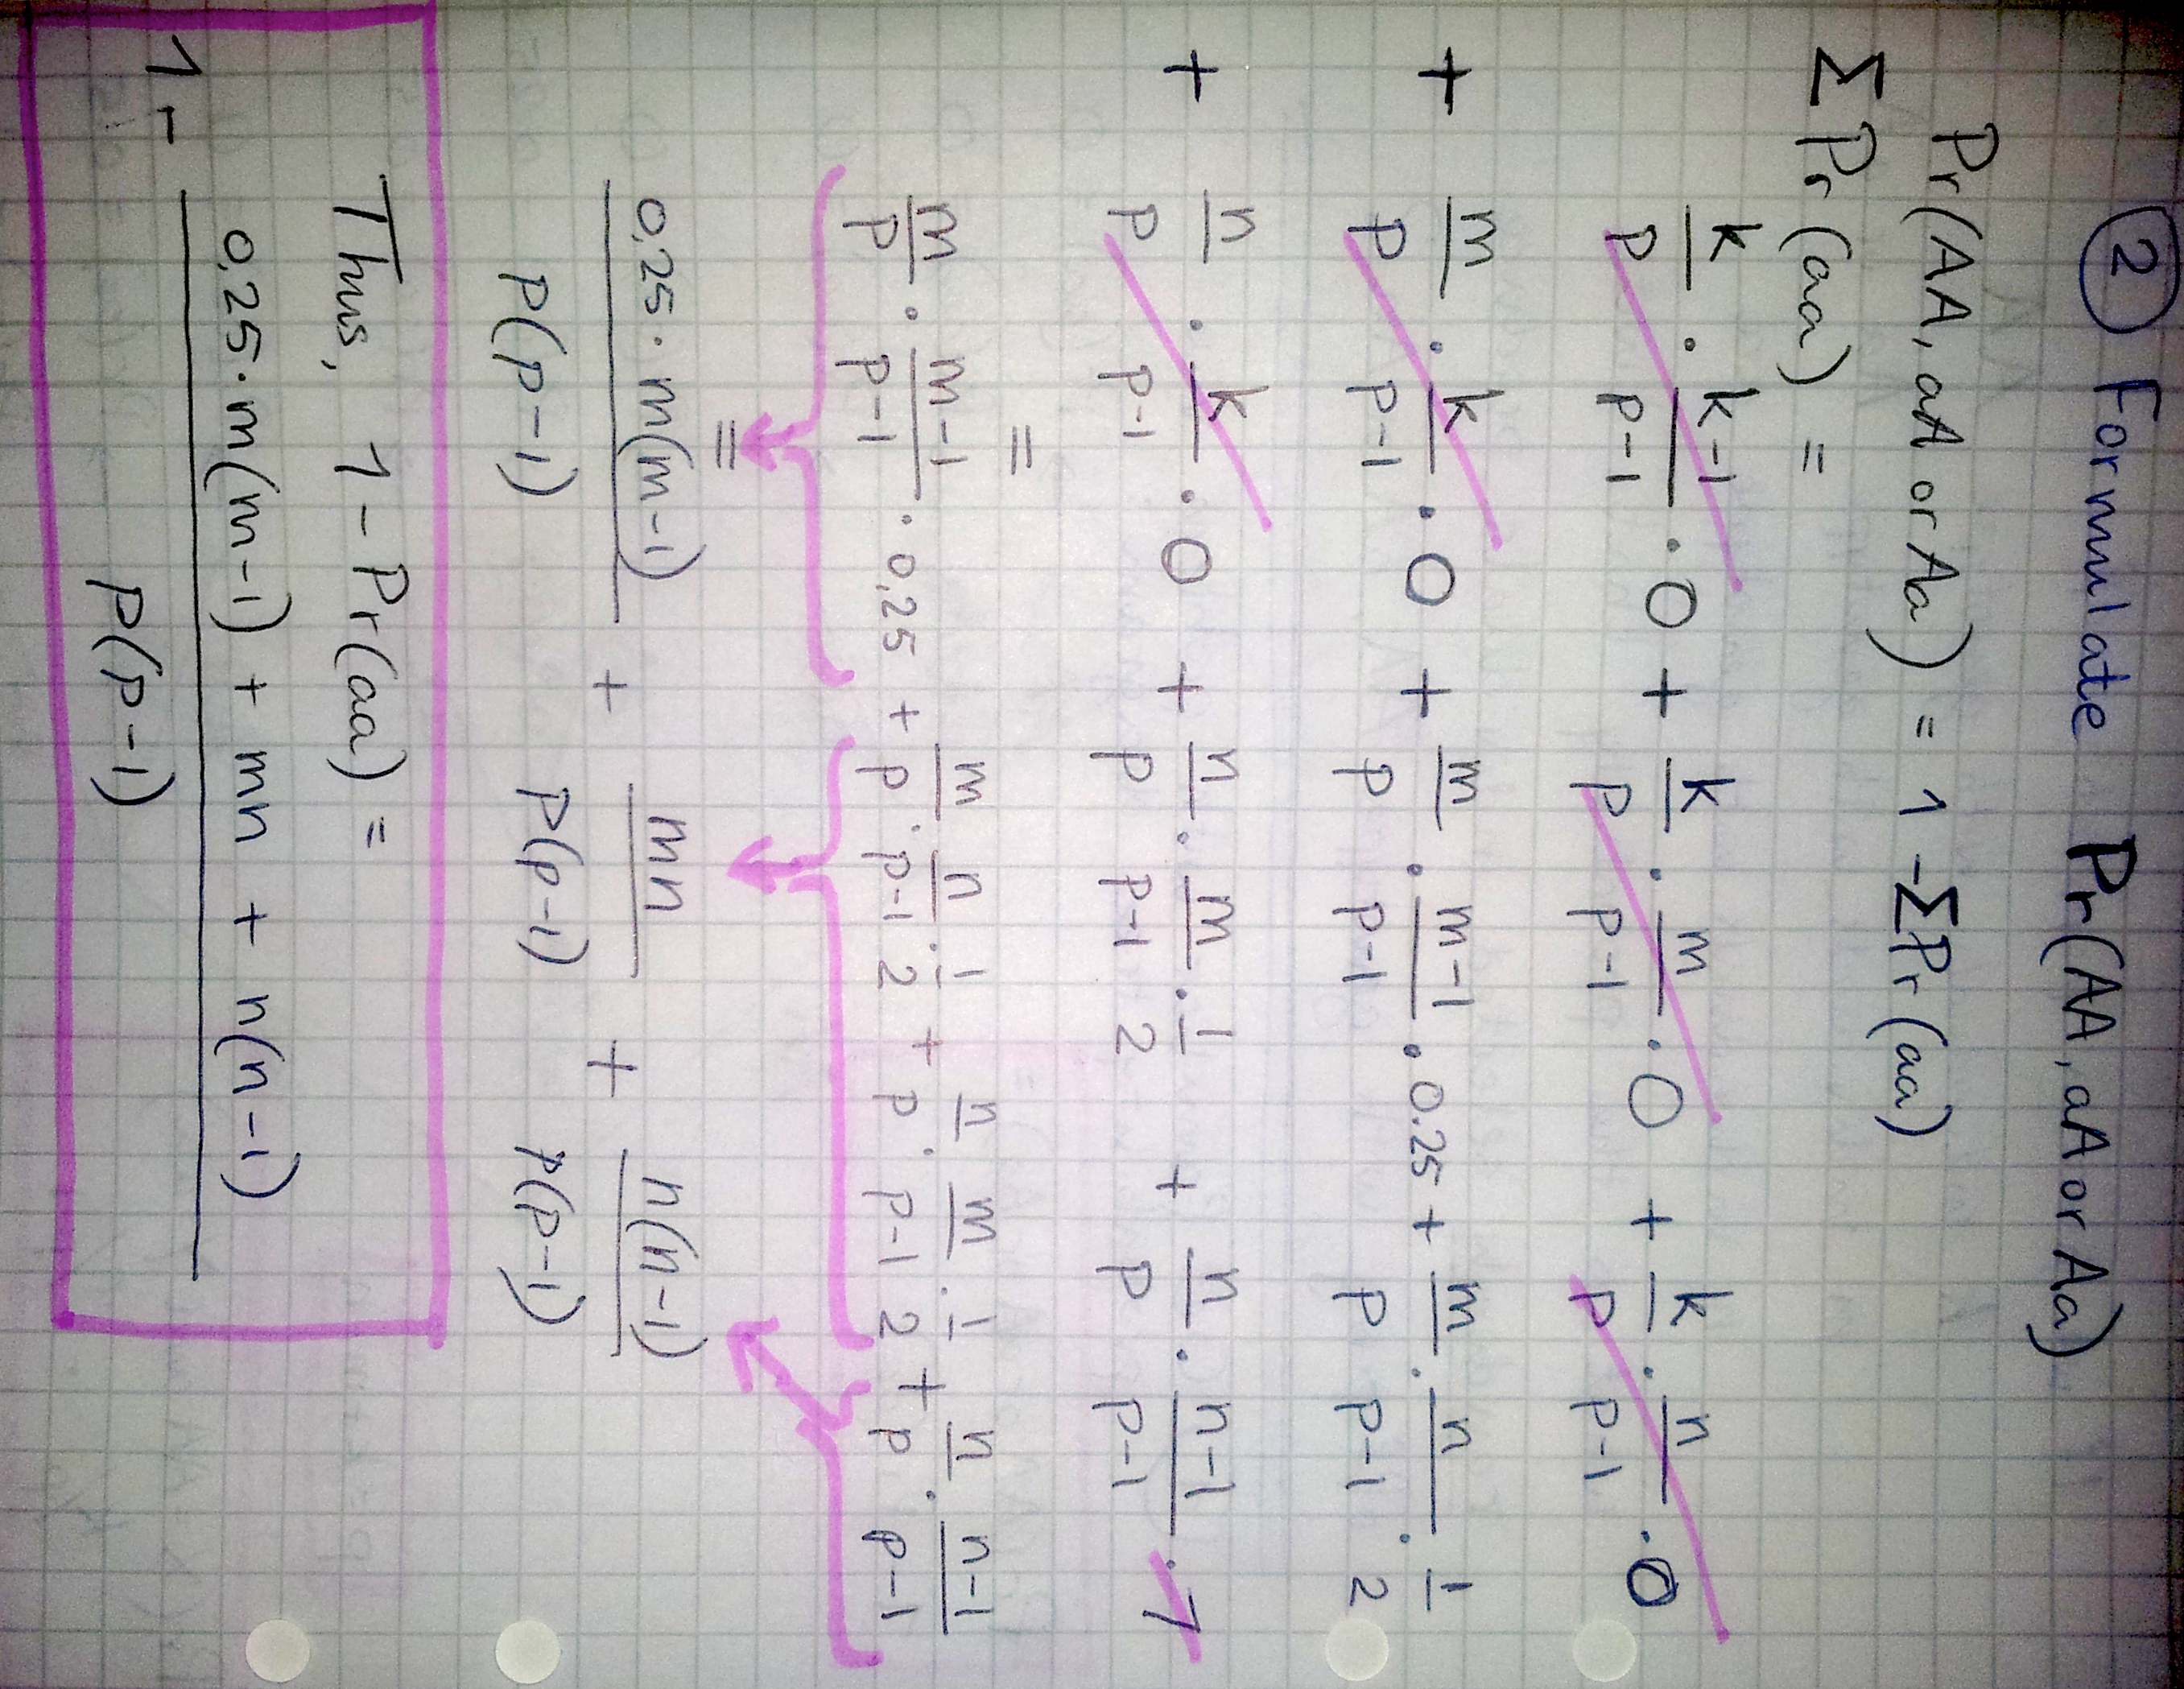 ② Formulate Pr(AA, aA or Aa)
Pr(AA, aA or Aa) = 1 - ΣPr(aa)
ΣPr(aa) =
k/p · (k-1)/(p-1) · 0 + k/p · m/(p-1) · 0 + k/p · n/(p-1) · 0
+ m/p · k/(p-1) · 0 + m/p · (m-1)/(p-1) · 0.25 + m/p · n/(p-1) · 1/2
+ n/p · k/(p-1) · 0 + n/p · m/(p-1) · 1/2 + n/p · (n-1)/(p-1) · 1
=
m/p · (m-1)/(p-1) · 0,25 + m/p · n/(p-1) · 1/2 + n/p · m/(p-1) · 1/2 + n/p · (n-1)/(p-1)
=
0,25·m(m-1)/p(p-1) + mn/p(p-1) + n(n-1)/p(p-1)
Thus, 1 - Pr(aa) =
1 - (0,25·m(m-1) + mn + n(n-1))/p(p-1)